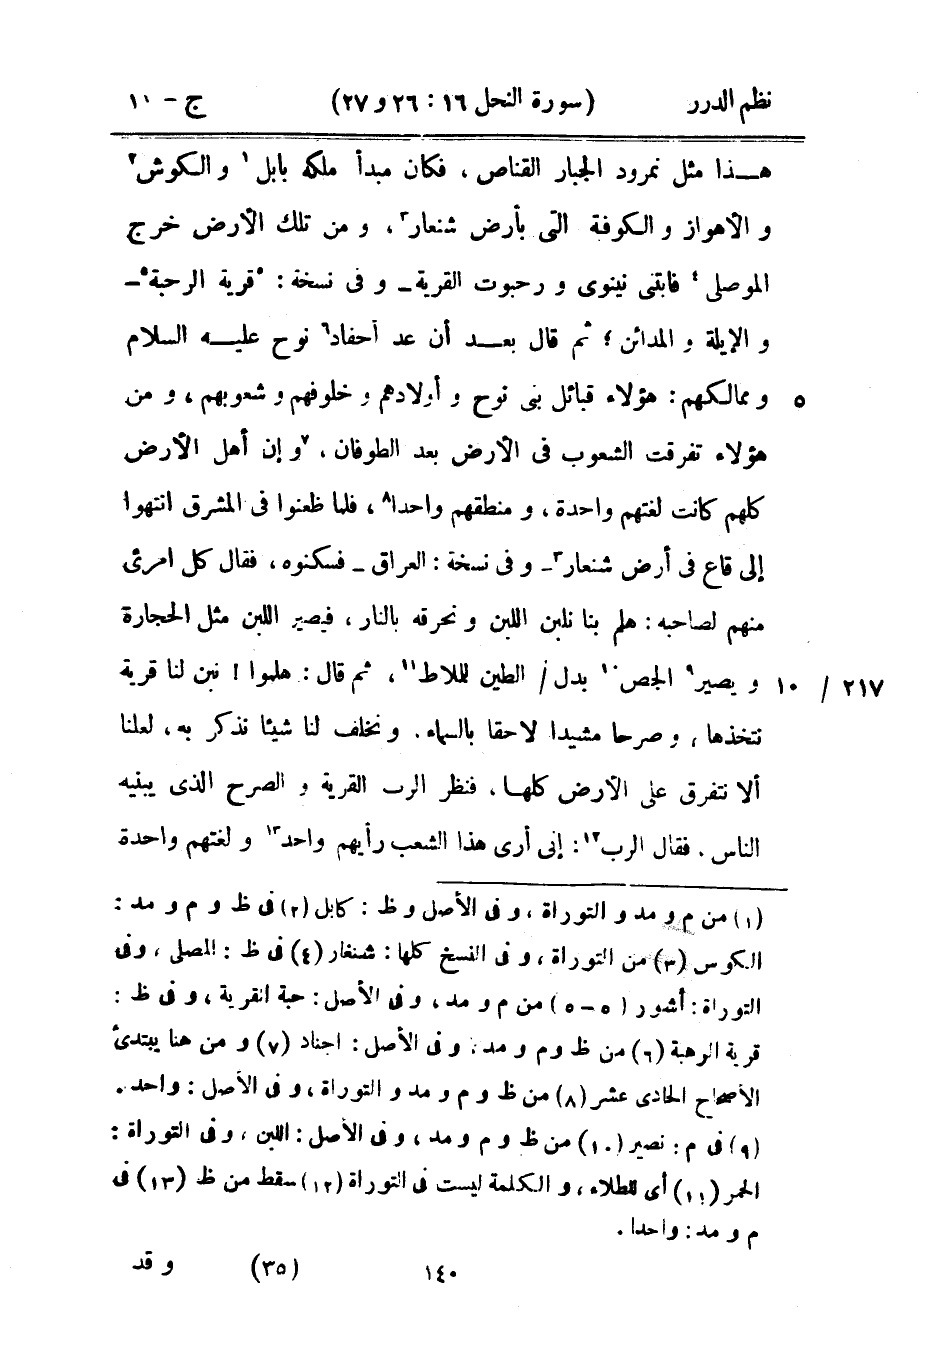 نظم الدرر (سورة النحل ١٦ : ٢٦ و ٢٧) ج - ١١
هـــذا مثل نمرود الجبار القناص ، فكان مبدأ ملكه بابل١ و الكوش٢
و الأهواز و الكوفة التى بأرض شنعار٣، و من تلك الأرض خرج
الموصلى٤ فابتنى نينوى و رحبوت القرية ـ و فى نسخة : ٥قرية الرحبة٥ ـ
و الإيلة و المدائن ؛ ثم قال بعـــد أن عد أحفاد٦ نوح عليـــه السلام
و ممالكهم : هؤلاء قبائل بنى نوح و أولادهم و خلوفهم و شعوبهم ، و من ٥
هؤلاء تفرقت الشعوب فى الأرض بعد الطوفان ، ٧و إن أهل الأرض
كلهم كانت لغتهم واحدة ، و منطقهم واحدا٨ ، فلما ظعنوا فى المشرق انتهوا
إلى قاع فى أرض شنعار٣ ـ و فى نسخة : العراق ـ فسكنوه ، فقال كل امرئ
منهم لصاحبه : هلم بنا نلبن اللبن و نحرقه بالنار ، فيصير اللبن مثل الحجارة
و يصير٩ الجص١٠ بدل / الطين للملاط١١ ، ثم قال : هلموا ! نبن لنا قرية ١٠ / ٢١٧
نتخذها ، و صرحا مشيدا لاحقا بالسماء . و نخلف لنا شيئا نذكر به ، لعلنا
ألا نتفرق على الأرض كلهـا ، فنظر الرب القرية و الصرح الذى يبنيه
الناس . فقال الرب١٢ : إنى أرى هذا الشعب رأيهم واحد١٣ و لغتهم واحدة
(١) من م و مد و التوراة ، و فى الأصل و ظ : كابل (٢) فى ظ و م و مد :
الكوس (٣) من التوراة ، و فى النسخ كلها : شنغار (٤) فى ظ : المصلى ، و فى
التوراة : أشور (٥ - ٥) من م و مد ، و فى الأصل : حبة القرية ، و فى ظ :
قرية الرهبة (٦) من ظ و م و مد ، و فى الأصل : اجناد (٧) و من هنا يبتدئ
الأصحاح الحادى عشر (٨) من ظ و م و مد و التوراة ، و فى الأصل : واحد .
(٩) فى م : نصير (١٠) من ظ و م و مد ، و فى الأصل : اللبن ، و فى التوراة :
الحمر (١١) أى للطلاء ، و الكلمة ليست فى التوراة (١٢) سقط من ظ (١٣) فى
م و مد : واحدا .
١٤٠ (٣٥) و قد